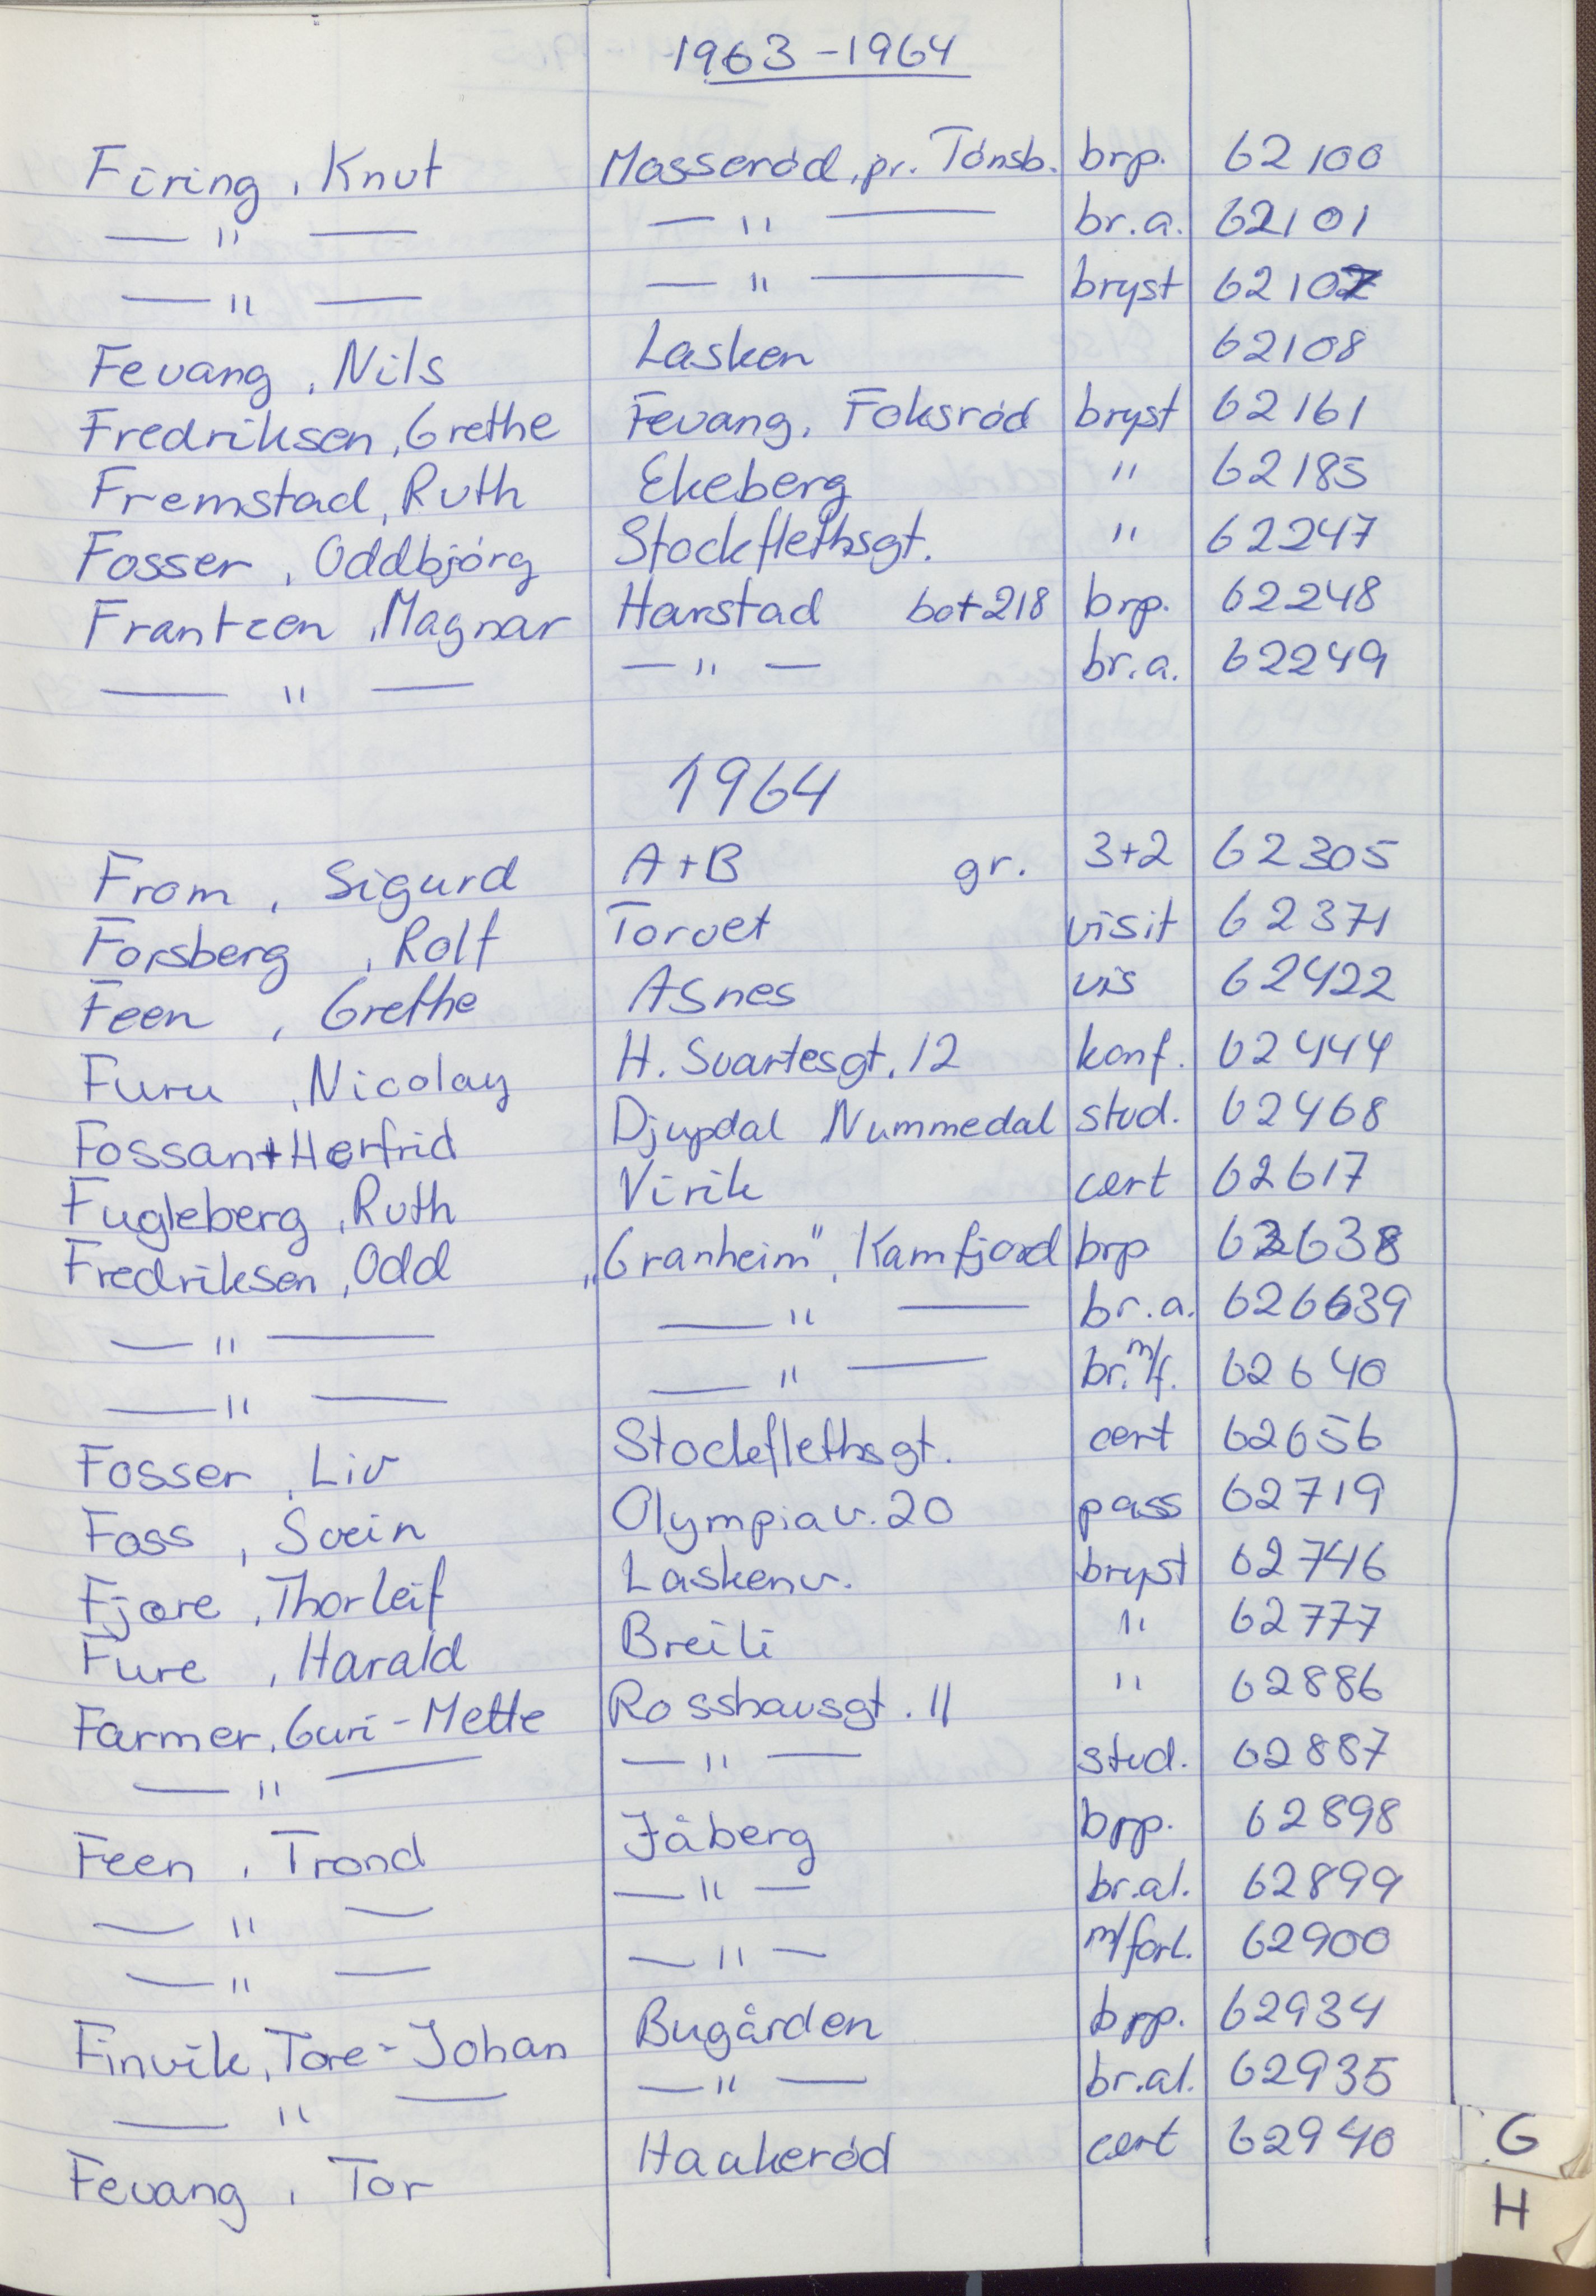 1963-1964
Firing, Knut Masserød, pr. Tønsb. brp. 62100
— " — — " — br.a. 62101
— " — — " — bryst 62102
Fevang, Nils Lasken 62108
Fredriksen, Grethe Fevang, Foksrød bryst 62161
Fremstad, Ruth Ekeberg " 62185
Fosser, Oddbjørg Stockflethsgt. " 62247
Frantzen, Magnar Harstad bot 218 brp. 62248
— " — — " — br.a. 62249
1964
From, Sigurd A+B gr. 3+2 62305
Forsberg, Rolf Torvet visit 62371
Feen, Grethe Asnes vis 62422
Furu, Nicolay H. Svartesgt. 12 konf. 62444
Fossan+Herfrid Djupdal Nummedal stud. 62468
Fugleberg, Ruth Virik cert 62617
Fredriksen, Odd "Granheim", Kamfjord brp 62638
— " — — " — br.a. 626639
— " — — " — br. m/f. 62640
Fosser, Liv Stockflethsgt. cert 62656
Foss, Svein Olympiav. 20 pass 62719
Fjære, Thorleif Laskenv. bryst 62746
Fure, Harald Breili " 62777
Farmer, Guri-Mette Rosshausgt. 11 " 62886
— " — — " — stud. 62887
Feen, Trond Jåberg brp. 62898
— " — — " — br.al. 62899
— " — — " — m/forl. 62900
Finvik, Tore-Johan Bugården brp. 62934
— " — — " — br.al. 62935
Fevang, Tor Haakerød cert 62940
G
H